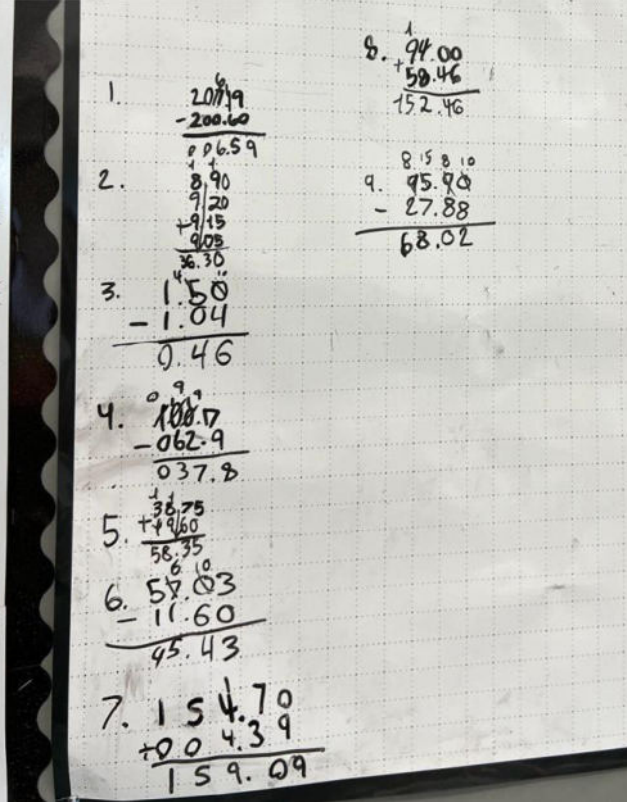 1.
6
207.19
-200.60
006.59
2.
1 1
8.90
9.20
+9.15
9.05
36.30
3.
4 10
1.50
-1.04
0.46
4.
0 9 9
100.7
-062.9
037.8
5.
1 1
38.75
+19.60
58.35
6.
6 10
57.03
-11.60
45.43
7.
1
154.70
+004.39
159.09
8.
1
94.00
+58.46
152.46
9.
8 15 8 10
95.90
- 27.88
68.02